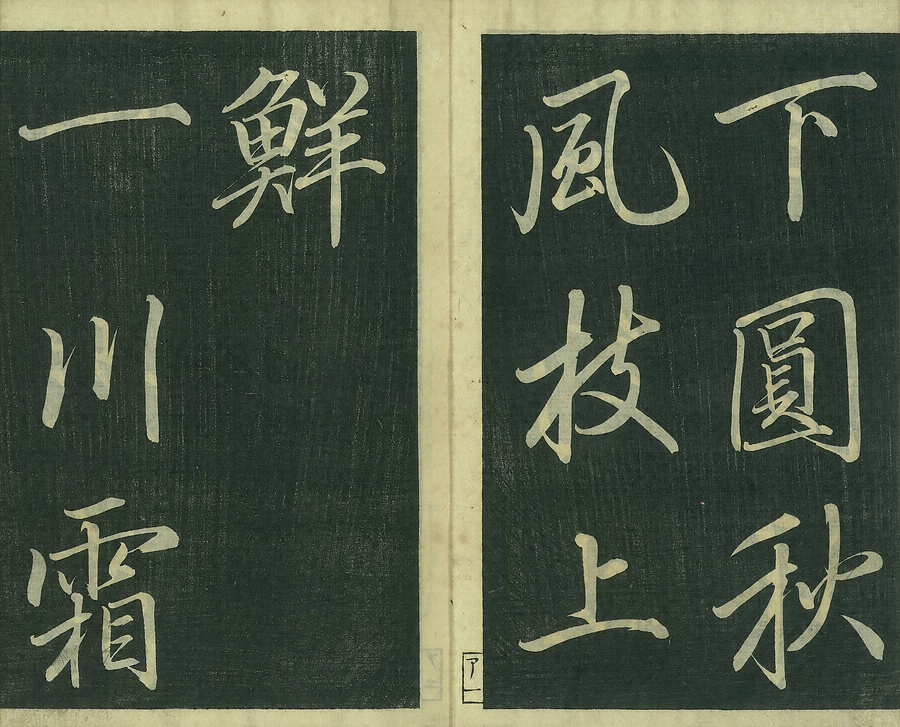 下圓秋
風枝上
鮮
一川霜
ア一